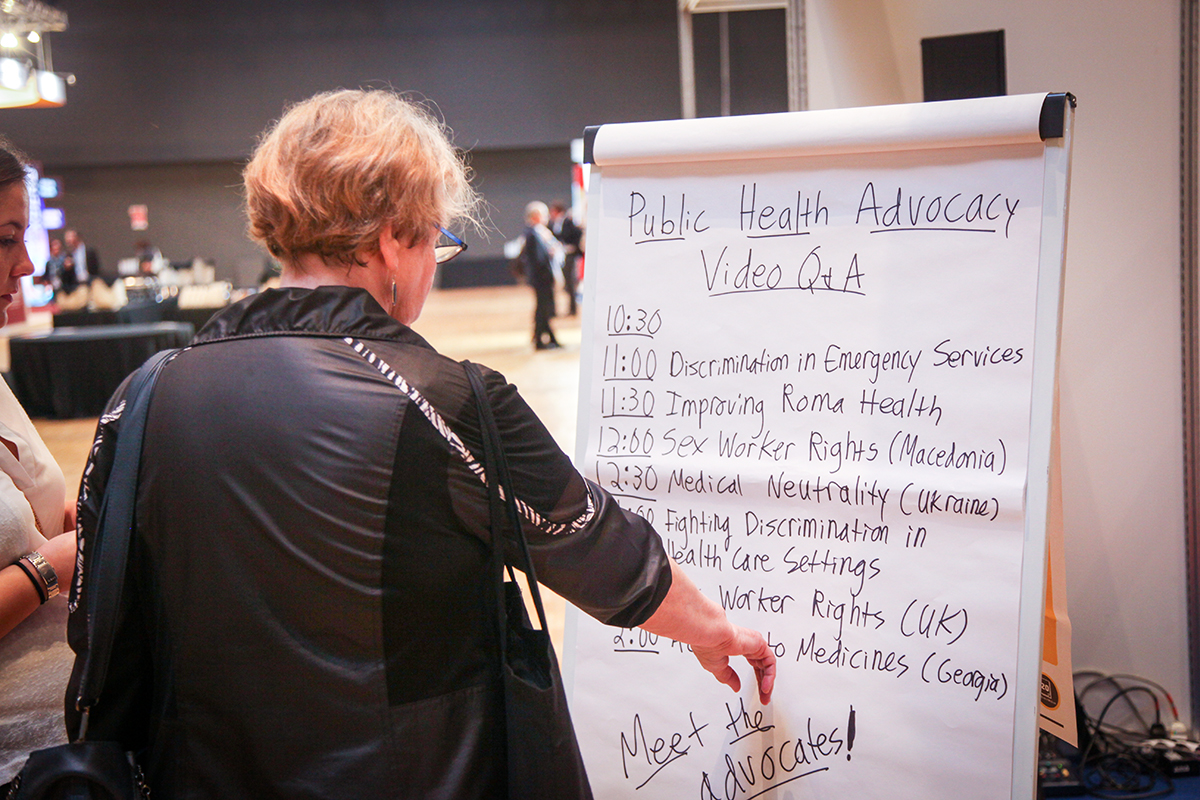 Public Health Advocacy
Video Q&A
10:30
11:00 Discrimination in Emergency Services
11:30 Improving Roma Health
12:00 Sex Worker Rights (Macedonia)
12:30 Medical Neutrality (Ukraine)
Fighting Discrimination in
Health Care Settings
Worker Rights (UK)
2:00 to Medicines (Georgia)
Meet the
advocates!